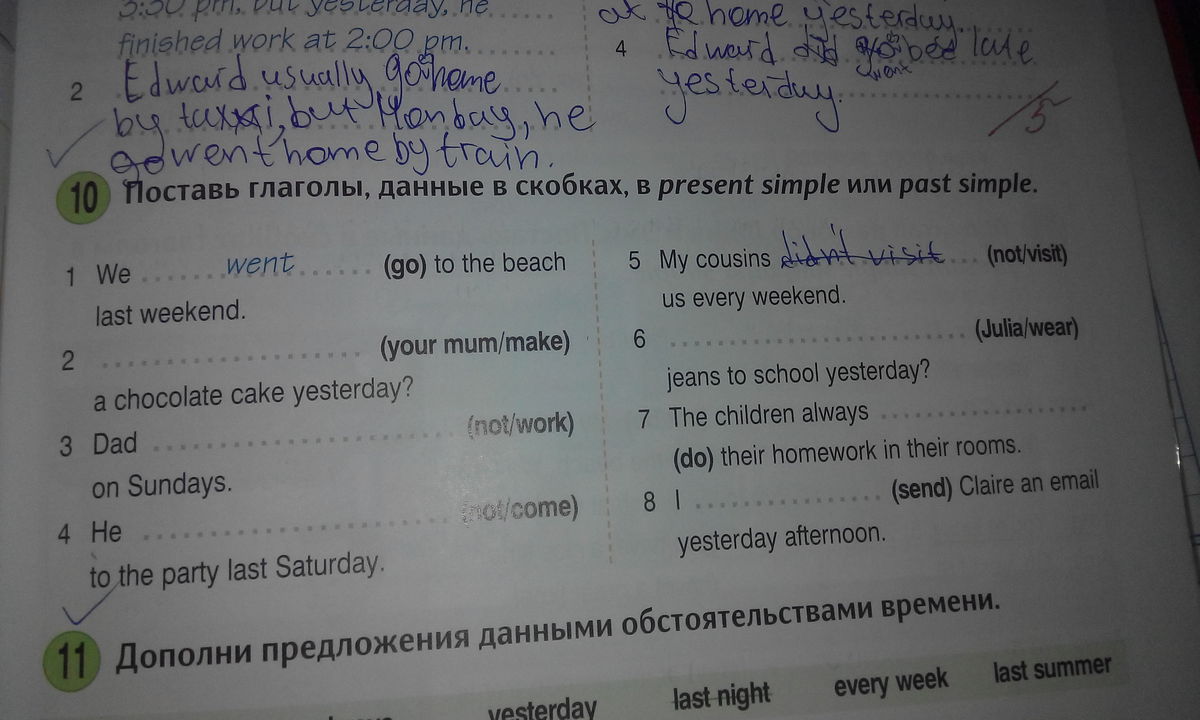 3:30 pm, but yesterday, he
finished work at 2:00 pm.
2 Edward usually go home
by taxi, but Monbay, he
went home by train.
at home yesterday.
4 Edward did go bed late
went
yesterday.
5
10 Поставь глаголы, данные в скобках, в present simple или past simple.
1 We ...... went ...... (go) to the beach
last weekend.
2 ...................... (your mum/make)
a chocolate cake yesterday?
3 Dad ...................... (not/work)
on Sundays.
4 He ...................... (not/come)
to the party last Saturday.
5 My cousins didn't visit .... (not/visit)
us every weekend.
6 ...................... (Julia/wear)
jeans to school yesterday?
7 The children always ......................
(do) their homework in their rooms.
8 I .................. (send) Claire an email
yesterday afternoon.
11 Дополни предложения данными обстоятельствами времени.
yesterday last night every week last summer